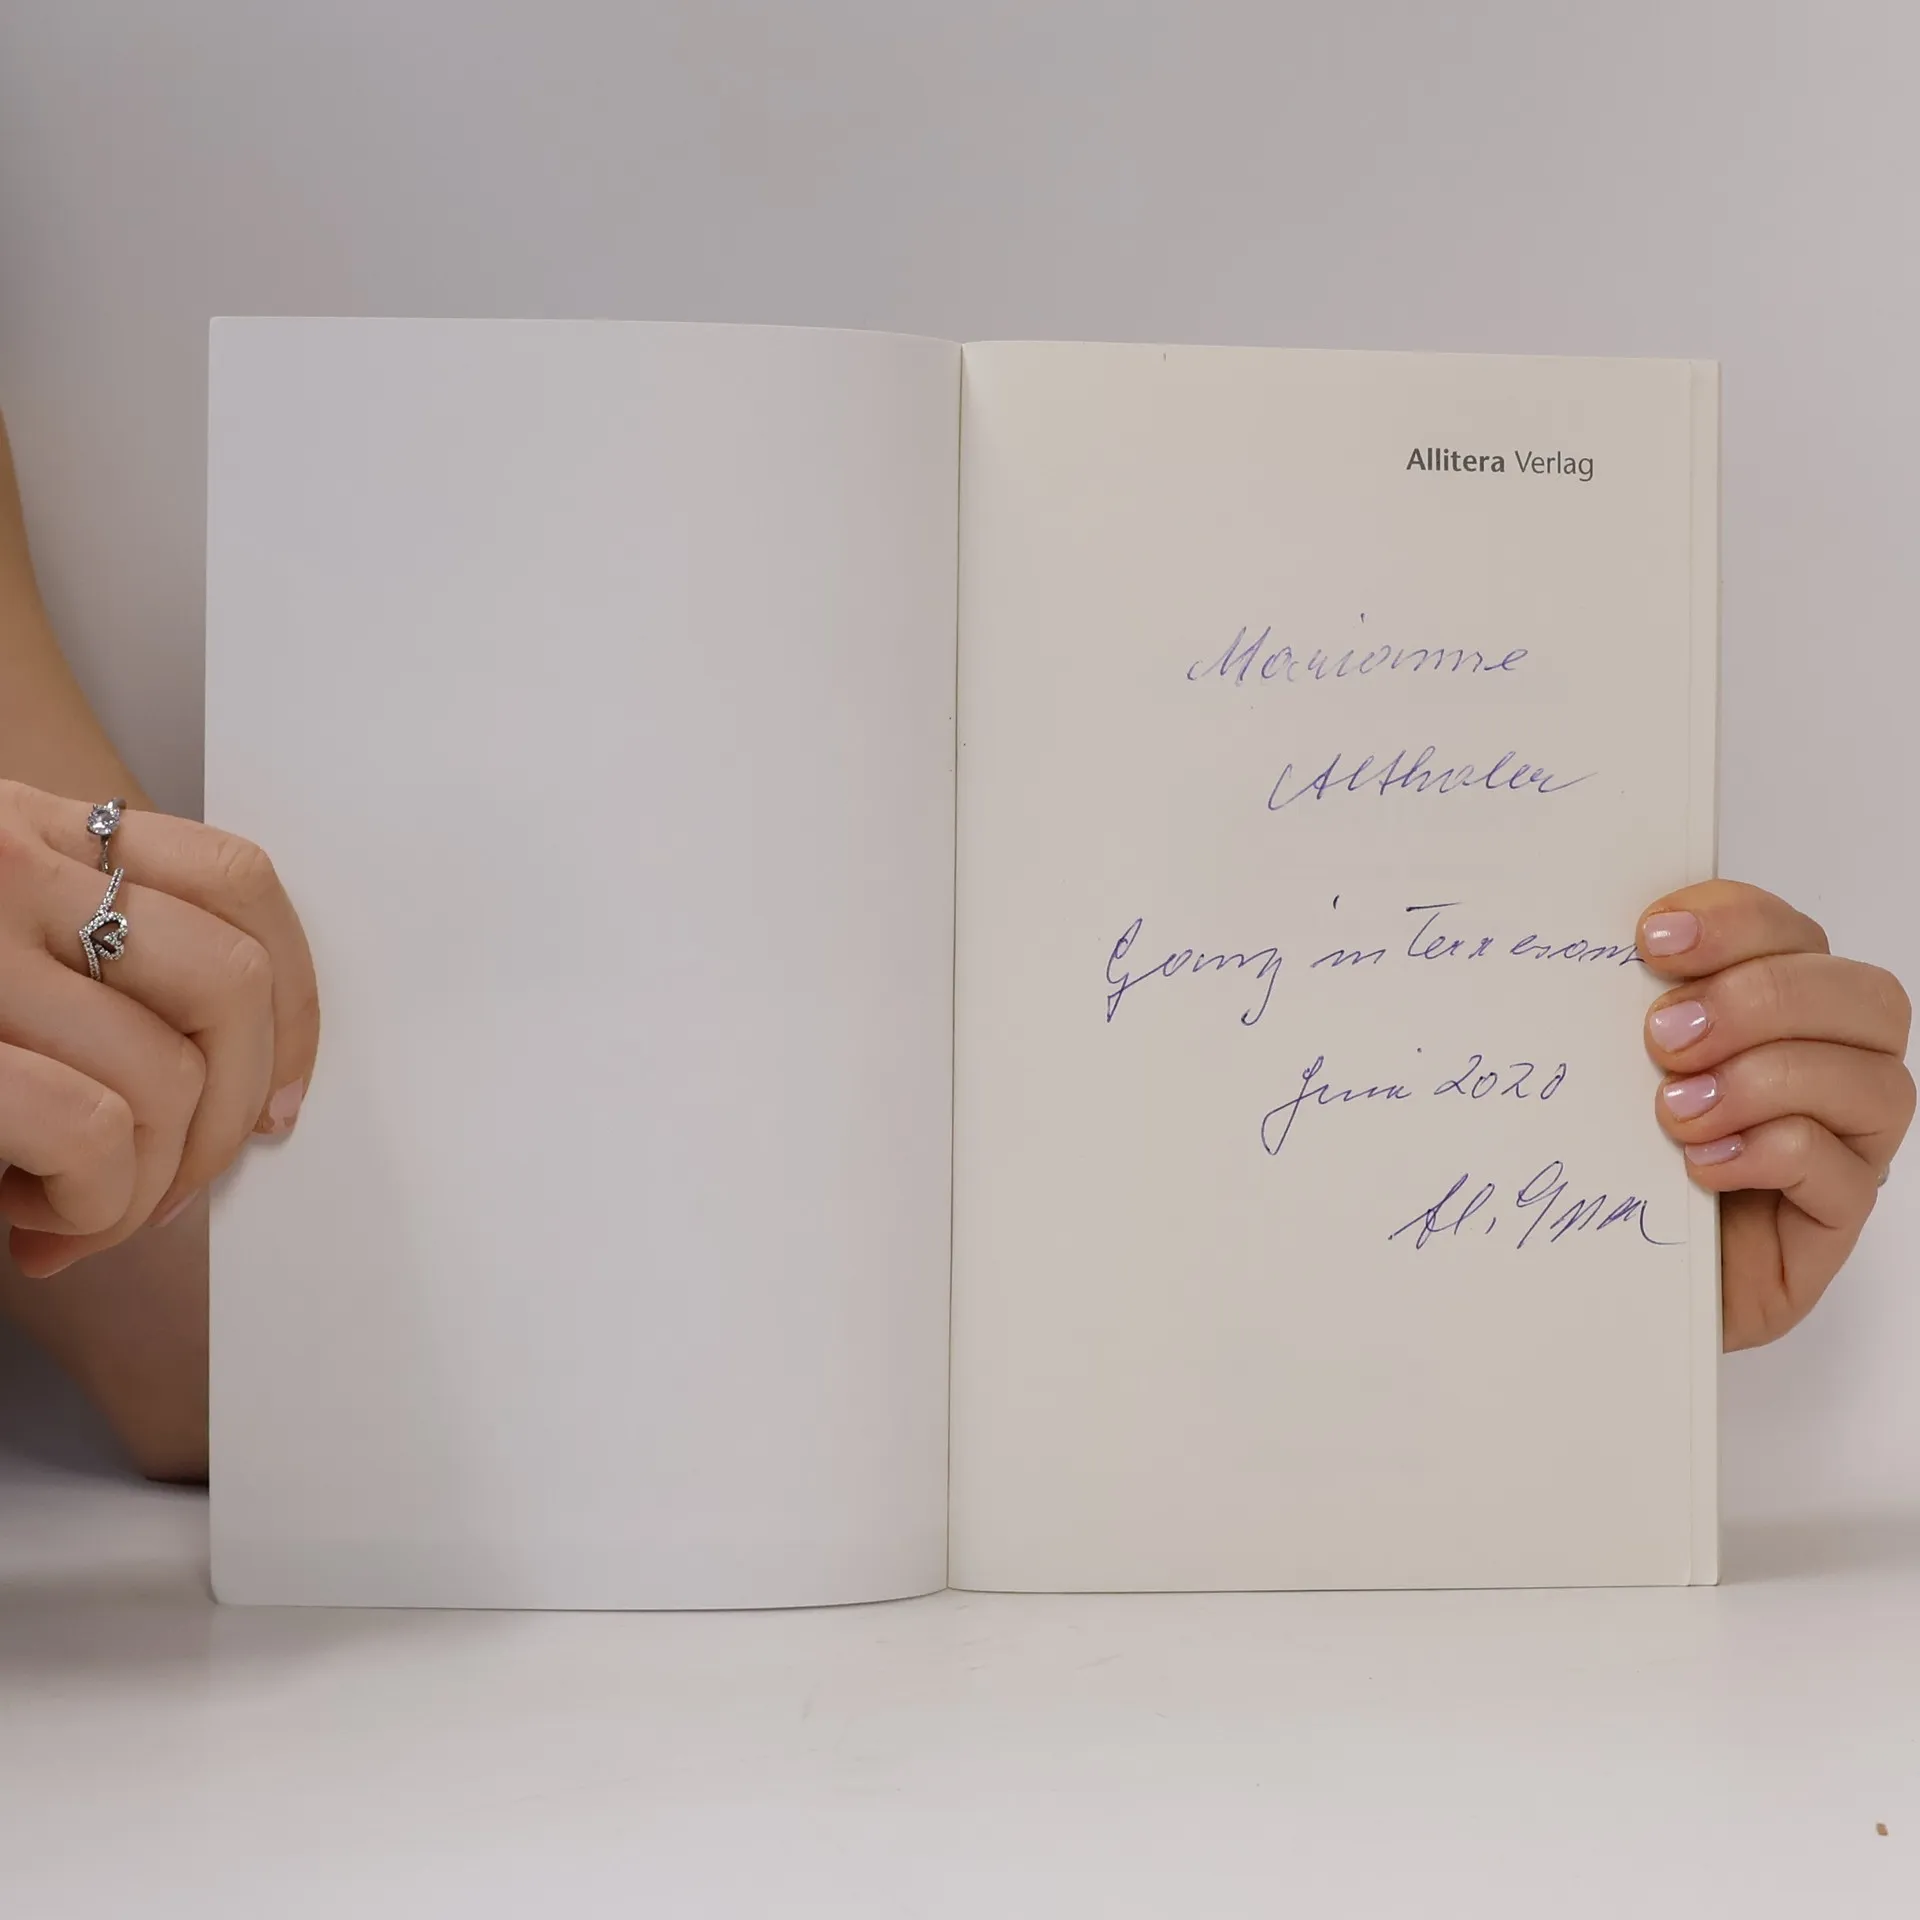 Allitera Verlag
Marianne
Althaler
Ganz interresant
Juni 2020